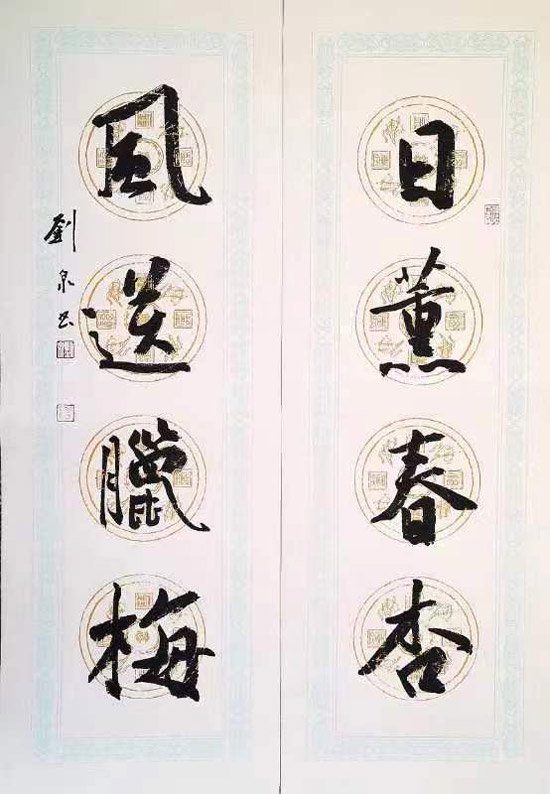 日薰春杏
風送臘梅
劉泉书